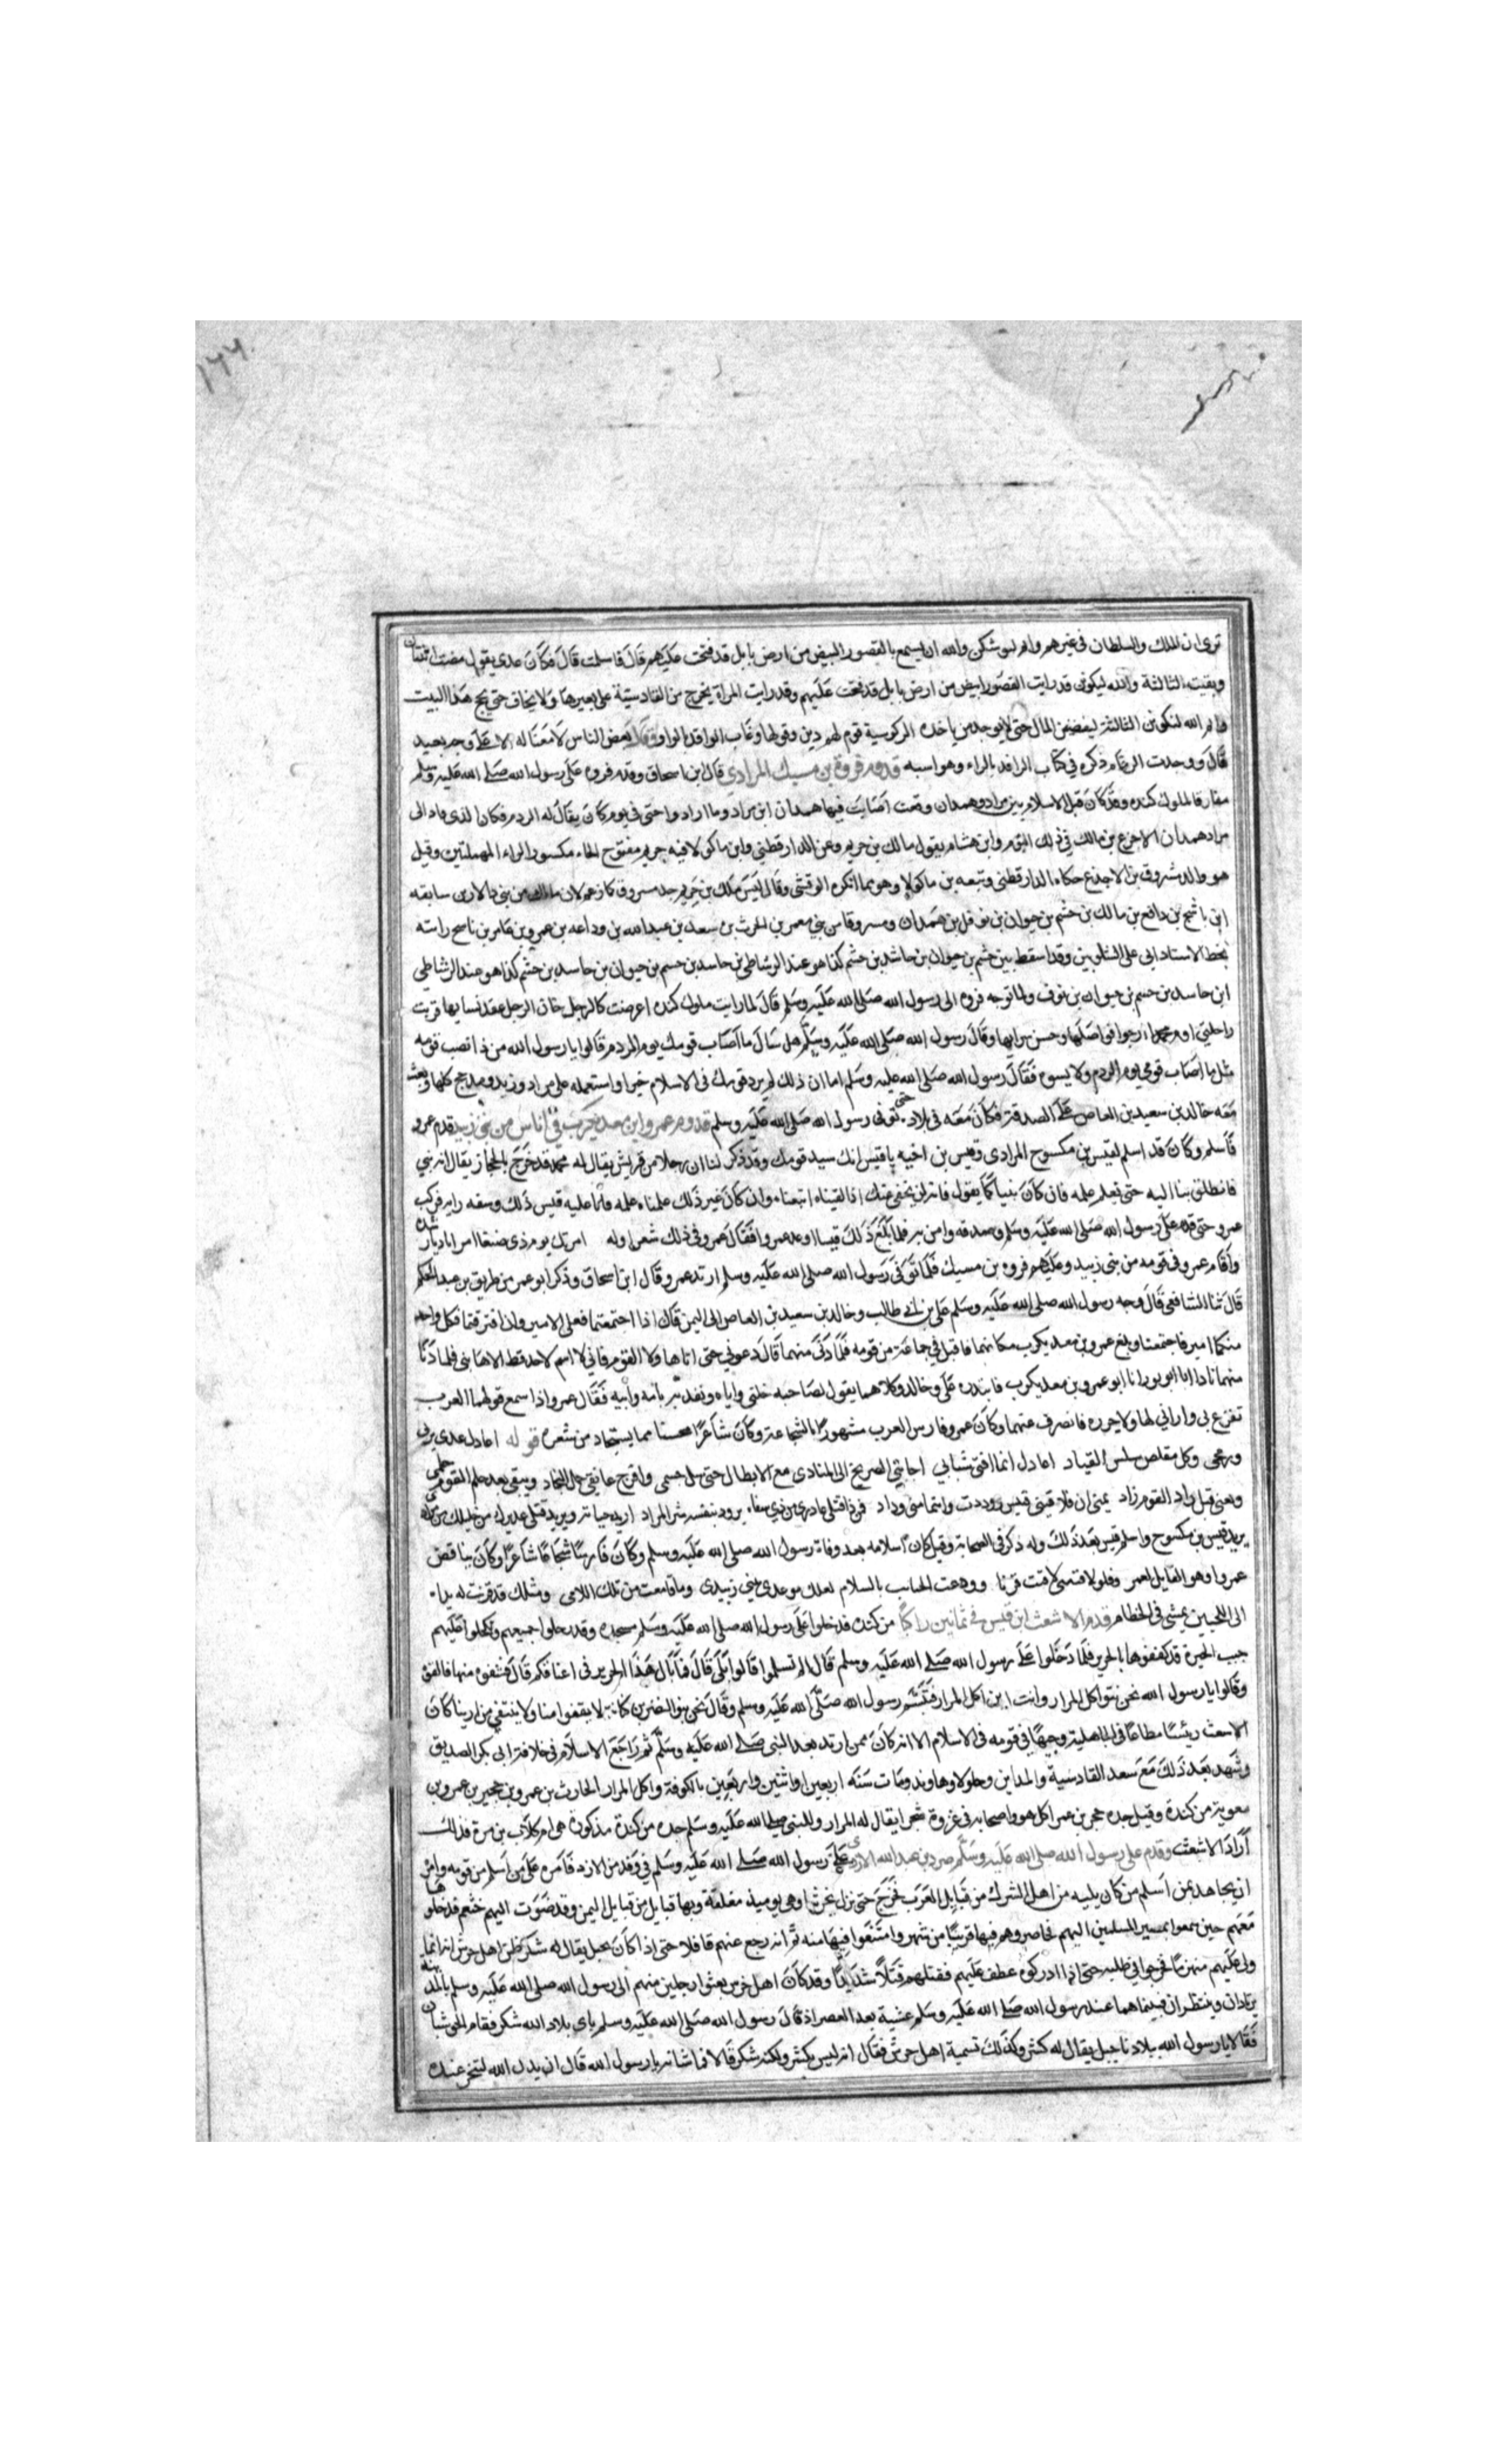 ترى ان الملك والسلطان في غيرهم وايم الله ليوشكن والله ان يسمع بالقصور البيض من ارض بابل قد فتحت عليهم قال فاسلمت قال فكان عدي يقول مضت اثنتان
وبقيت الثالثة والله ليكونن قد رايت القصور البيض من ارض بابل قد فتحت عليهم وقد رايت المراة تخرج من القادسية على بعيرها ولا تخاف حتى تحج هذا البيت
وايم الله لتكونن الثالثة ليفيضن المال حتى لا يوجد من ياخذه الركوسية قوم لهم دين وقولها وغاب الوافد بالواو وقال بعض الناس لا معنا له الا على وجه بعيد
قال ووجدت الرقام ذكره في كتاب الرافد بالراء وهو اشبه قدوم فروة بن مسيك المرادي قال ابن اسحاق وقدم فروه على رسول الله صلى الله عليه وسلم
مفارقا لملوك كنده وقد كان قبل الاسلام بين مراد وهمدان وقعت اصابت فيها همدان من مراد وما ارادوا حتى في يوم كان يقال له الردم فكان الذي قاد الى
مراد همدان الاجدع بن مالك في ذلك اليوم وابن هشام يقول مالك بن حريم وعن الدارقطني وابن ماكولا فيه حريم مفتوح الحاء مكسور الراء المهملتين وقيل
هو والد مسروق بن الاجدع حكاه الدارقطني وتبعه بن ماكولا وهو مما انكره الوقشي وقال ليس ملك بن حريم جد مسروق كما زعم لان مالك من بني دالان بن سابقه
ابن ناشج بن دافع بن مالك بن جشم بن حيوان بن نوفل بن همدان ومسروقا من بني معمر بن الحرث بن سعد بن عبد الله بن وداعه بن عمرو بن عامر بن ناسح راسته
بخط الاستاد ابى على الشلوبين وقد اسقط بين جشم بن حيوان بن حاشد بن جشم كذا هو عند الرشاطي بن حاسد بن جسم بن حيوان بن حاسد بن جشم كذا هو عند الرشاطي
ابن حاسد بن جسم بن حيوان بن نوف ولما توجه فروه الى رسول الله صلى الله عليه وسلم قال لما رايت ملوك كنده اعرضت كالرجل خان الرجل عقد نسايها قربت
راحلتي اوم محمدا ارجوا فواضلها وحسن ثرايها وقال رسول الله صلى الله عليه وسلم هل سال ما اصاب قومك يوم الردم قالوا يا رسول الله من ذا تصب قومه
مثل ما اصاب قومي يوم الردم ولا يسوه فقال رسول الله صلى الله عليه وسلم اما ان ذلك لم يزد قومك في الاسلام خيرا واستعمله على مراد وزبيد ومذحج كلها وبعث
معه خالد بن سعيد بن العاص على الصدقة فكان معه في بلاده حتى توفى رسول الله صلى الله عليه وسلم قدوم عمرو ابن معديكرب في اناس من بني زبيد قدم عمرو
فاسلم وكان قد اسلم لقيس بن مكسوح المرادي وقيس بن اخيه يا قيس انك سيد قومك وقد ذكر لنا ان رجلا من قريش يقال له محمد قد خرج بالحجاز يقال انه نبي
فانطلق بنا اليه حتى نعلم علمه فان كان نبيا كما يقول فانه لن يخفي عنك اذا لقيناه اتبعناه وان كان غير ذلك علمنا علمه فابا عليه قيس ذلك وسفه رايه فركب
عمرو حتى قدم على رسول الله صلى الله عليه وسلم وصدقه وامن به فلما بلغ ذلك قيسا اوعد عمرا فقال عمرو في ذلك شعرا وله امرتك يوم ذي صنعا امرا باديا رشده
واقام عمرو في قومه من بني زبيد وعليهم فروه بن مسيك فلما توفى رسول الله صلى الله عليه وسلم ارتد عمرو قال ابن اسحاق وذكر ابو عمر من طريق بن عبد الحكم
قال ثنا الشافعى قال وجه رسول الله صلى الله عليه وسلم على بن ابي طالب وخالد بن سعيد بن العاص الى اليمن قال اذا اجتمعتما فعلى الامير وان افترقتما فكل واحد
منكما امير فاجتمعنا وبلغ عمرو بن معديكرب مكانهما فاقبل في جماعة من قومه فلما دنى منهما قال دعوني حتى اتا هاولا القوم فاني لا اسم لاحد قط الا هابني فلما دنا
منهما نادا انا ابو ثور انا ابو عمرو بن معديكرب فابتدره على وخالد وكلاهما يقول لصاحبه خلني واياه ويفديه بامه وابيه فقال عمرو اذا سمع قولهما العرب
تفزع بي واراني لها ولا جزره فانصرف عنهما وكان عمرو فارس العرب مشهورا بالشجاعة وكان شاعرا محسنا مما يستجاد من شعره قوله اعادل عدي بدني
ورمحي وكل مقلص سلس القياد اعاذل انما افنى شبابي اجابتي الصريخ الى المنادي مع الابطال حتى سل جسمي واقرح عاتقي حمل النجاد ويبقى بعد حلم القوم حلمي
ويفني قبل زاد القوم زاد يمنى ان فلا قيني قيس وددت واينما مني وداد فمن ذا عاذري من ذي سفاه يرود بنفسه شر المراد اريد حياته ويريد قتلى عذيرك من خليلك من مراد
يريد قيس بن مكسوح واسلم قيس بعد ذلك وله ذكر في الصحابة وقيل كان اسلامه بعد وفاة رسول الله صلى الله عليه وسلم وكان فارسا شجاعا شاعرا وكان يناقض
عمروا وهو القايل لعمرو فلو لاقيتني لاقيت قرنا وودعت الحبايب بالسلام لعلك موعدي ببني زبيدي وما قامعت من تلك اللامى ومثلك قد قرنت له يدا
الى اللحيين يمشي في الخطام قدم الاشعث ابن قيس في ثمانين راكبا من كنده فدخلوا على رسول الله صلى الله عليه وسلم مسجده وقد رجلوا جميعهم وتكحلوا عليهم
جبب الحبرة قد كففوها بالحرير فلما دخلوا على رسول الله صلى الله عليه وسلم قال الم تسلموا قالوا بلى قال فما بال هذا الحرير في اعناقكم قال فشقوه منها فالقوه
وقالوا يا رسول الله نحن بنو اكل المرار وانت ابن اكل المرار فتبسم رسول الله صلى الله عليه وسلم وقال نحن بنو النضر بن كنانة لا نقفوا امنا ولا ننتفي من ابينا كان
الاسعث رئسا مطاعا في الجاهلية وجيها في قومه فى الاسلام الا انه كان ممن ارتد بعد النبي صلى الله عليه وسلم ثم راجع الاسلام في خلافة ابى بكر الصديق
وشهد بعد ذلك مع سعد القادسية والمداين وجلولا ونهاوند ومات سنه اربعين او اثنين واربعين بالكوفة واكل المرار الحارث بن عمرو بن حجير بن عمرو بن
معوية من كندة وقيل جده حجر بن عمر اكل هو واصحابه في غزوة شجرا يقال له المرار وللنبي صلى الله عليه وسلم جده من كندة مذكورة هى ام كلاب بن مرة فذلك
اراد الاشعث وقدم على رسول الله صلى الله عليه وسلم صرد بن عبد الله الازدى على رسول الله صلى الله عليه وسلم في وفد من الازد فامره على من اسلم من قومه وامره
ان يجاهد بمن اسلم من كان يليه من اهل الشرك من قبايل العرب فخرج حتى نزل بجرش وهي يوميذ مغلقة وبها قبايل من قبايل اليمن وقد ضوت اليهم خثعم فدخلوها
معهم حين سمعوا بمسير المسلمين اليهم فحاصروهم فيها قريبا من شهر وامتنعوا فيها منه ثم انه رجع عنهم قافلا حتى اذا كان بجبل يقال له شكر ظن اهل جرش انه انما
ولى عليهم منهزما فخرجوا في طلبه حتى اذا ادركوه عطف عليهم فقتلهم قتلا شديدا وقد كان اهل جرش بعثوا رجلين منهم الى رسول الله صلى الله عليه وسلم بالمدينة
يرتادان وينتظران فبينما هما عند رسول الله صلى الله عليه وسلم عشية بعد العصر اذ قال رسول الله صلى الله عليه وسلم باى بلاد الله شكر فقام الجرشيان
فقالا يا رسول الله ببلادنا جبل يقال له كشر وكذلك تسمية اهل جرش فقال انه ليس بكشر ولكنه شكر قالا فما شانه يا رسول الله قال ان بدن الله لتنحر عنده